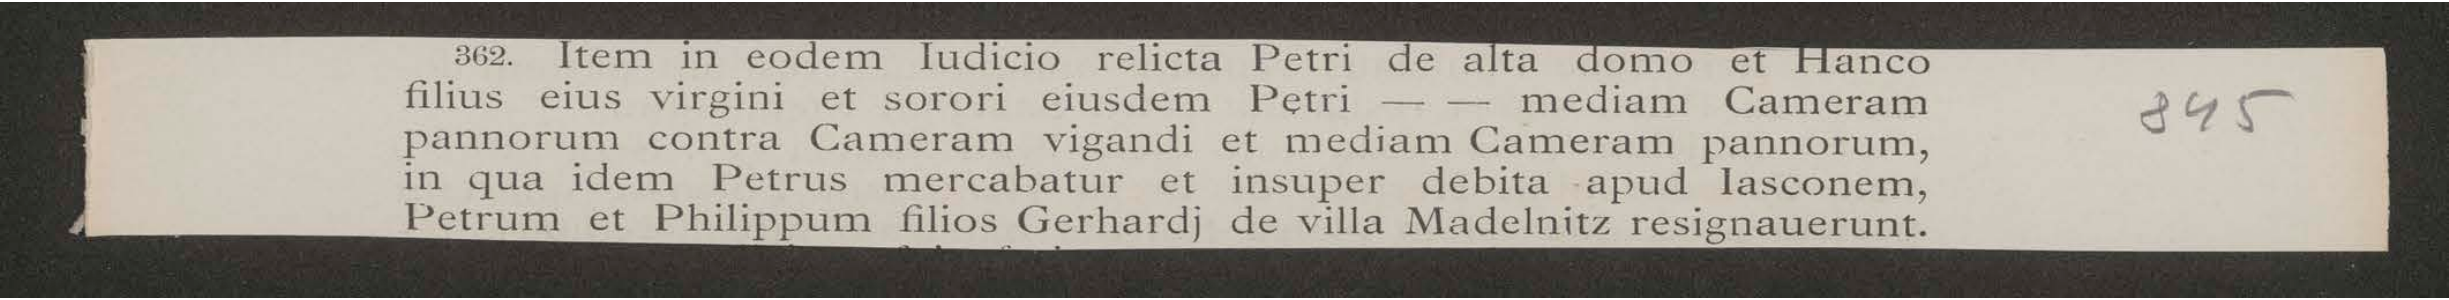 362. Item in eodem Iudicio relicta Petri de alta domo et Hanco
filius eius virgini et sorori eiusdem Petri — — mediam Cameram
pannorum contra Cameram vigandi et mediam Cameram pannorum,
in qua idem Petrus mercabatur et insuper debita apud Iasconem,
Petrum et Philippum filios Gerhardj de villa Madelnitz resignauerunt.
845